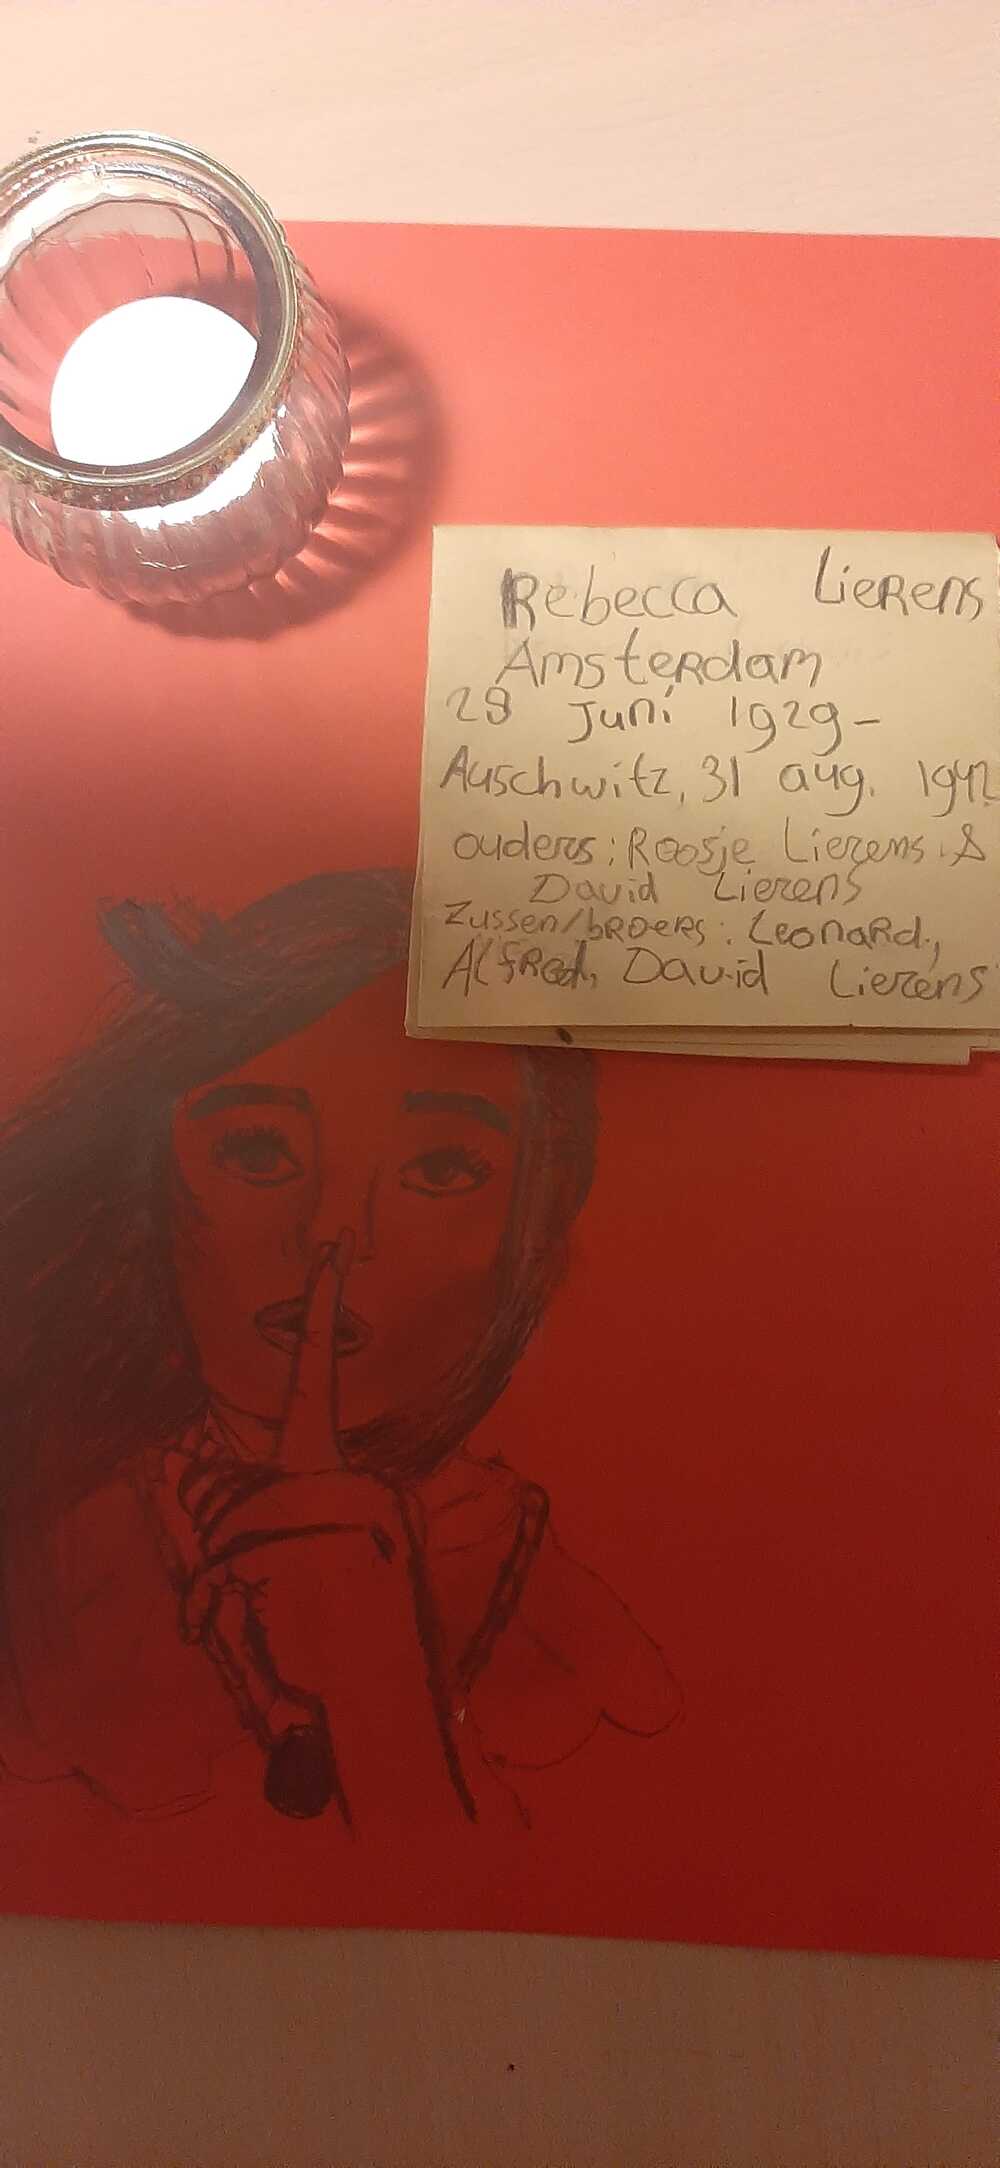 Rebecca Lierens
Amsterdam
28 Juni 1929-
Auschwitz, 31 aug. 1942
ouders: Roosje Lierens &
David Lierens
Zussen/broers: Leonard,
Alfred, David Lierens